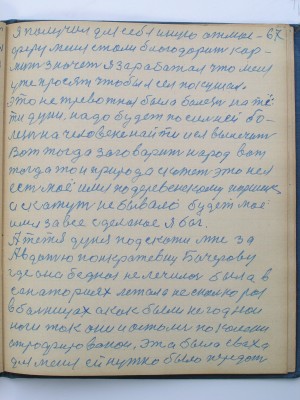 я получил для себя
меня стали благодарить кар-
мит значет я заработал что меня
уже просят чтобы я сел покушал.
Это не тревотная была болезнь на тё-
ти дуни. надо будет по сильней бо-
лезнь на человеке найти и я вылечить
Вот тогда заговорит народ вот
тогда то и природа скажет это не я
ест моё имя по деревенскому
и скажут не бывало будет моё
имя за все сделаное я бог.
А тётя дуня подскажи мне за
Авдотью понкратевну Бочарову
где она бедная не лечилась была в
санаториях летала несколько раз
в больницах а как были негодной
ноги так они и остались по коленки
отрофированои, эта была сваха
для меня ей нужно было передат